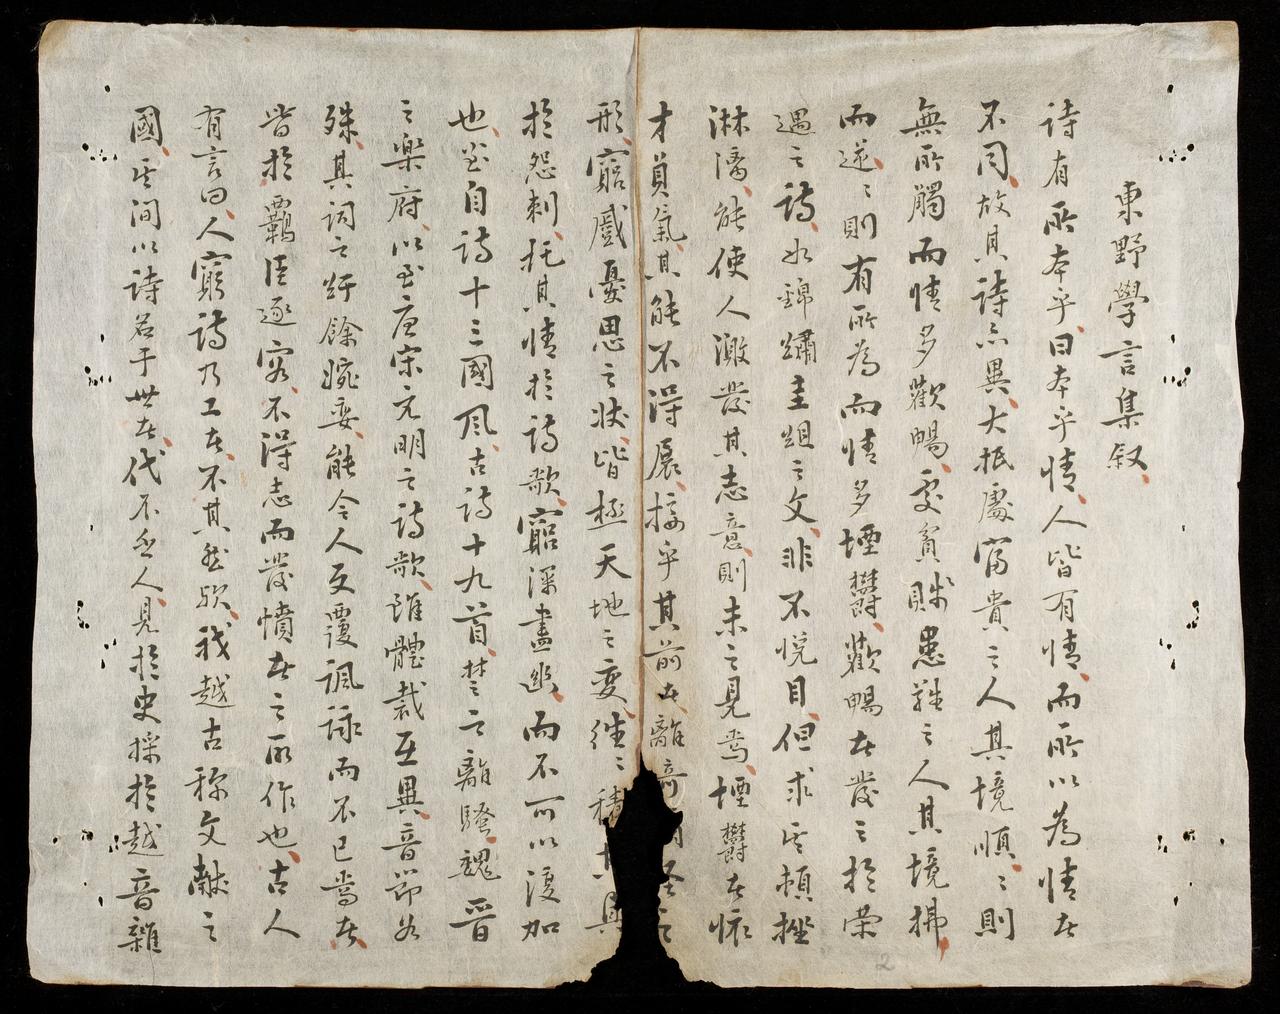 東野學言集叙
詩有所本乎曰本乎情人皆有情而所以為情者
不同故其詩亦異大抵處富貴之人其境順々則
無所觸而情多歡暢處貧賤患難之人其境拂
而逆々則有所為而情多堙欝歡暢者發之於榮
遇之詩如錦繡圭俎之文非不悅目但求其頓挫
淋漓能使人激發其志意則未之見焉堙欝者懷
才負氣其能不得展接乎其前者離奇 怪之
形窮戚憂思之狀皆極天地之變徃々積 其興
於怨刺托其情於詩歌窮深盡幽而不可以復加
也盖自詩十三國風古詩十九首楚之離騷魏晋
之樂府以至唐宋元明之詩歌雖體裁互異音節各
殊其詞之紆餘婉委能令人反覆諷詠而不已焉者
皆於羈臣逐客不得志而發憤者之所作也古人
有言曰人窮詩乃工者不其然欤我越古称文献之
國其间以詩名于世者代不乏人見於史採於越音雜